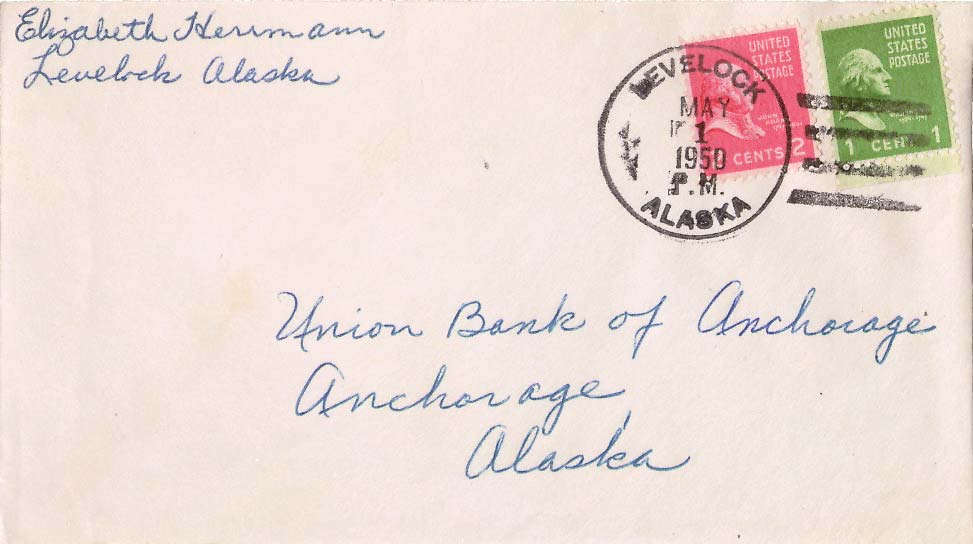 Elizabeth Herrmann
Levelock Alaska
LEVELOCK
MAY
1
1950
P.M.
ALASKA
UNITED
STATES
POSTAGE
CENTS 2
UNITED
STATES
POSTAGE
1 CENT 1
Union Bank of Anchorage
Anchorage,
Alaska